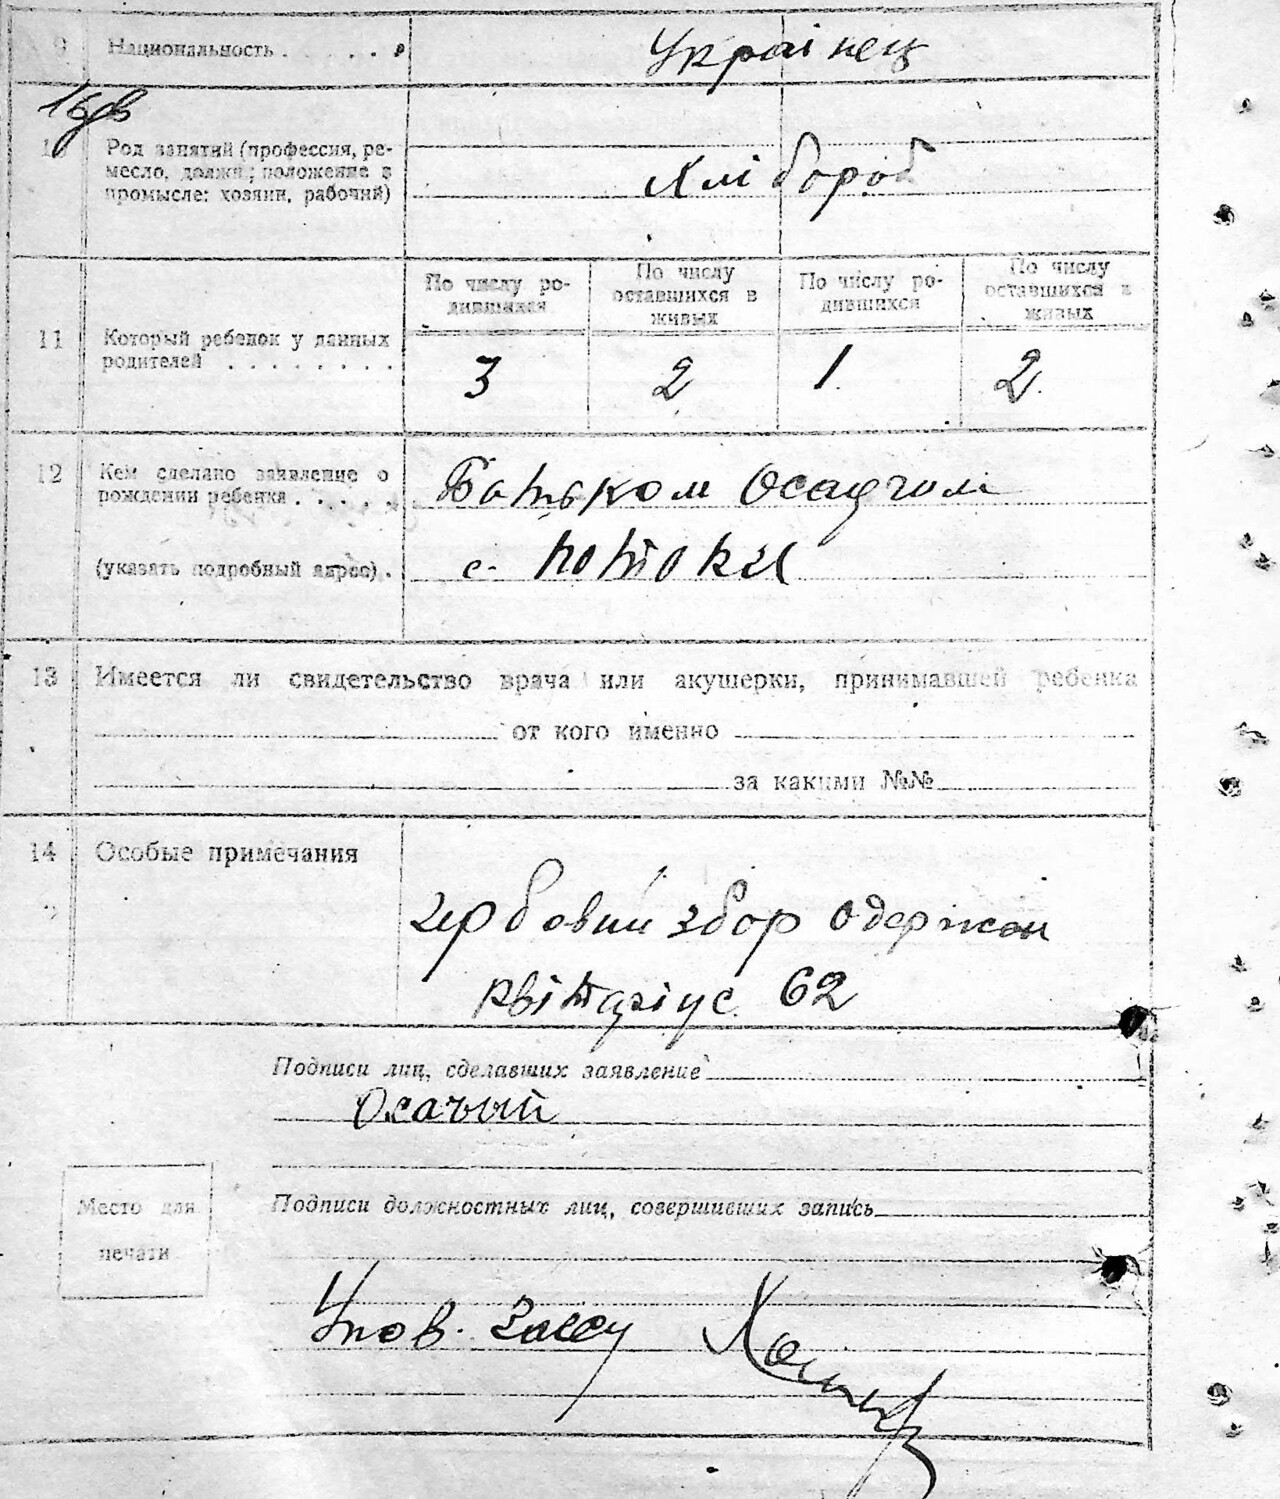 9 Национальность . . . . . .
Українец
10 Род занятий (профессия, ре-
месло, должн; положение в
промысле: хозяин, рабочий)
Хлібороб
По числу ро-
дившихся
По числу
оставшихся в
живых
По числу ро-
дившихся
По числу
оставшихся в
живых
11 Который ребенок у данных
родителей . . . . . . . .
3 2 1 2
12 Кем сделано заявление о
рождении ребенка . . . . .
Батьком Осадчом
(указать подробный адрес) .
с. Потоки
13 Имеется ли свидетельство врача или акушерки, принимавшей ребенка
от кого именно
за какими №№
14 Особые примечания
гербовий збор одержан
62
Подписи лиц, сделавших заявление
Осачый
Место для
печати
Подписи должностных лиц, совершивших запись
Упов. Загсу